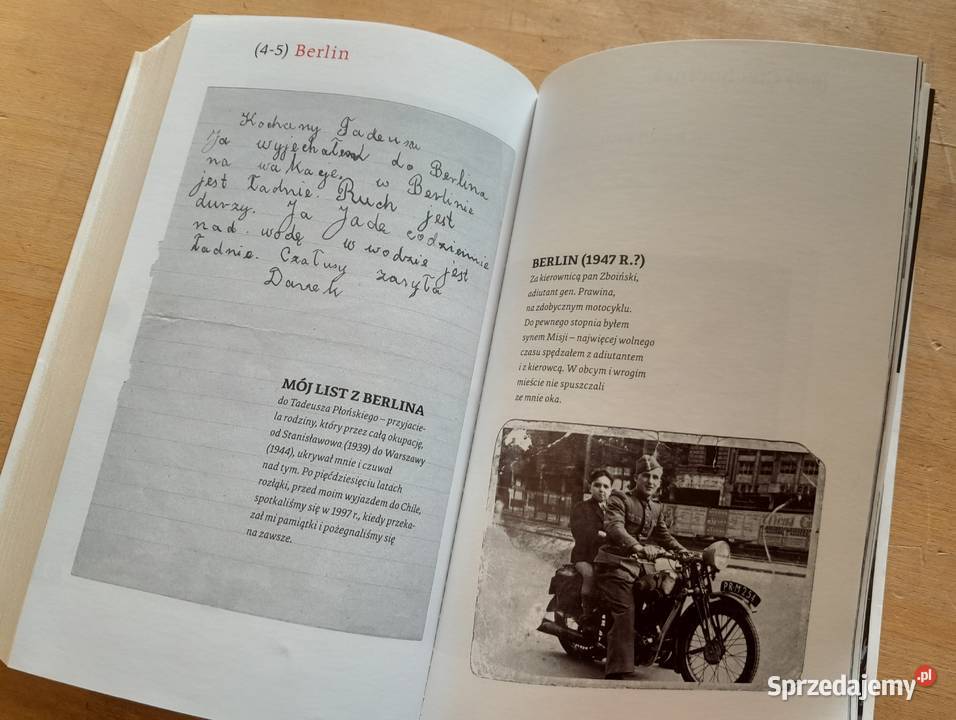 (4-5) Berlin
Kochany Tadeusu
Ja wyjechałem do Berlina
na wakage. w Berlinie
jest ładnie. Ruch jest
durzy. Ja Jade codziennie
nad. wodę w wodzie jest
ładnie. Czałusy zasyła
Danek
MÓJ LIST Z BERLINA
do Tadeusza Płońskiego – przyjacie-
la rodziny, który przez całą okupację,
od Stanisławowa (1939) do Warszawy
(1944), ukrywał mnie i czuwał
nad tym. Po pięćdziesięciu latach
rozłąki, przed moim wyjazdem do Chile,
spotkaliśmy się w 1997 r., kiedy przeka-
zał mi pamiątki i pożegnaliśmy się
na zawsze.
BERLIN (1947 R.?)
Za kierownicą pan Zboiński,
adiutant gen. Prawina,
na zdobycznym motocyklu.
Do pewnego stopnia byłem
synem Misji – najwięcej wolnego
czasu spędzałem z adiutantem
i z kierowcą. W obcym i wrogim
mieście nie spuszczali
ze mnie oka.
PRM 231
Sprzedajemy.pl